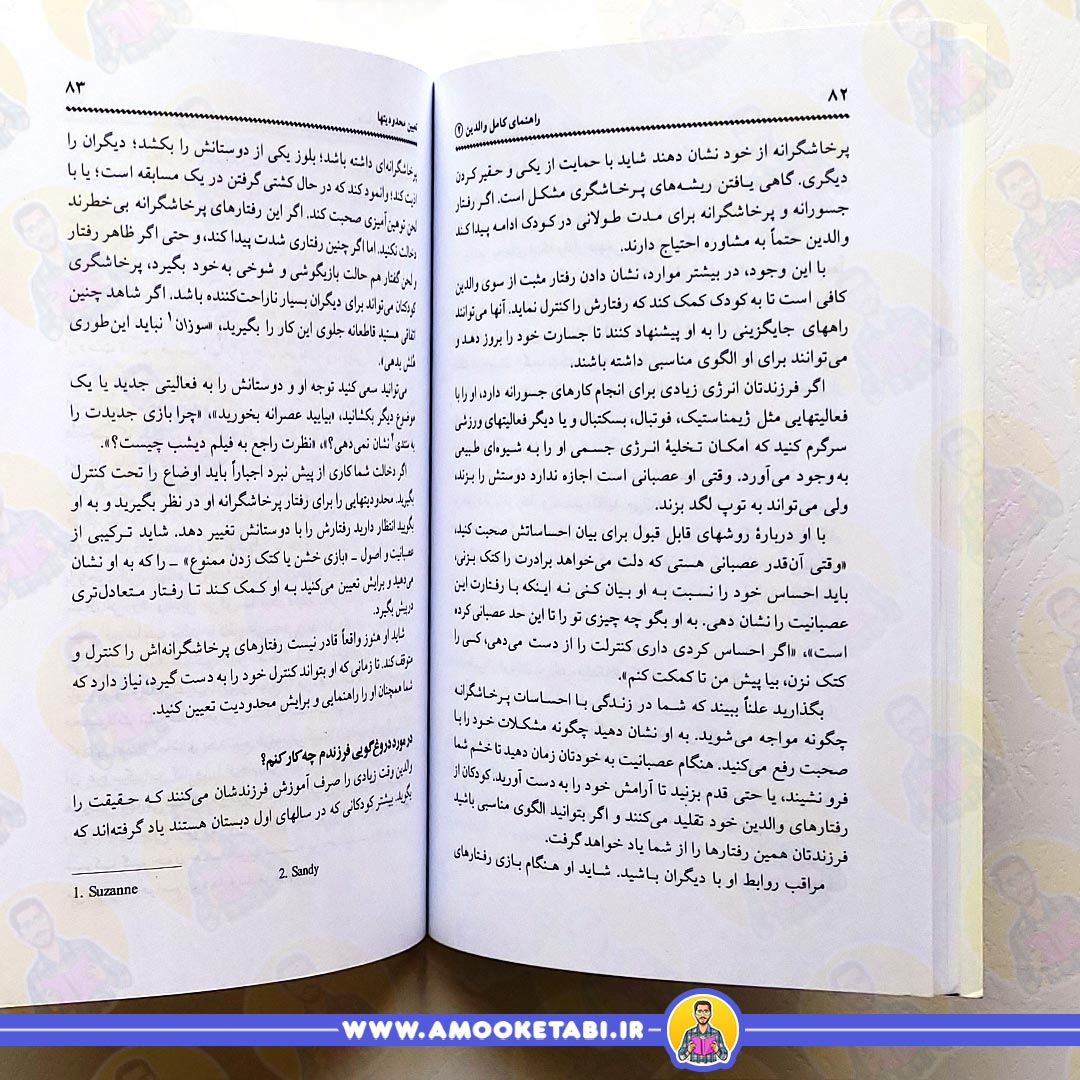 ۸۲
راهنمای کامل والدین ۲
پرخاشگرانه از خود نشان دهند شاید با حمایت از یکی و حقیر کردن
دیگری. گاهی یافتن ریشه‌های پرخاشگری مشکل است. اگر رفتار
جسورانه و پرخاشگرانه برای مدت طولانی در کودک ادامه پیدا کند
والدین حتماً به مشاوره احتیاج دارند.
با این وجود، در بیشتر موارد، نشان دادن رفتار مثبت از سوی والدین
کافی است تا به کودک کمک کند که رفتارش را کنترل نماید. آنها می‌توانند
راههای جایگزینی را به او پیشنهاد کنند تا جسارت خود را بروز دهد و
می‌توانند برای او الگوی مناسبی داشته باشند.
اگر فرزندتان انرژی زیادی برای انجام کارهای جسورانه دارد، او را با
فعالیتهایی مثل ژیمناستیک، فوتبال، بسکتبال و یا دیگر فعالیتهای ورزشی
سرگرم کنید که امکان تخلیهٔ انرژی جسمی او را به شیوه‌ای طبیعی
به وجود می‌آورد. وقتی او عصبانی است اجازه ندارد دوستش را بزند،
ولی می‌تواند به توپ لگد بزند.
با او دربارهٔ روشهای قابل قبول برای بیان احساساتش صحبت کنید،
«وقتی آن‌قدر عصبانی هستی که دلت می‌خواهد برادرت را کتک بزنی،
باید احساس خود را نسبت به او بیان کنی نه اینکه با رفتارت این
عصبانیت را نشان دهی. به او بگو چه چیزی تو را تا این حد عصبانی کرده
است»، «اگر احساس کردی داری کنترلت را از دست می‌دهی، کسی را
کتک نزن، بیا پیش من تا کمکت کنم».
بگذارید علناً ببیند که شما در زندگی با احساسات پرخاشگرانه
چگونه مواجه می‌شوید. به او نشان دهید چگونه مشکلات خود را با
صحبت رفع می‌کنید. هنگام عصبانیت به خودتان زمان دهید تا خشم شما
فرو نشیند، یا حتی قدم بزنید تا آرامش خود را به دست آورید. کودکان از
رفتارهای والدین خود تقلید می‌کنند و اگر بتوانید الگوی مناسبی باشید
فرزندتان همین رفتارها را از شما یاد خواهد گرفت.
مراقب روابط او با دیگران باشید. شاید او هنگام بازی رفتارهای
۸۳
تعیین محدودیتها
پرخاشگرانه‌ای داشته باشد؛ بلوز یکی از دوستانش را بکشد؛ دیگران را
اذیت کند؛ وانمود کند که در حال کشتی گرفتن در یک مسابقه است؛ یا با
لحن توهین‌آمیزی صحبت کند. اگر این رفتارهای پرخاشگرانه بی‌خطرند
دخالت نکنید، اما اگر چنین رفتاری شدت پیدا کند، و حتی اگر ظاهر رفتار
و لحن گفتار هم حالت بازیگوشی و شوخی به خود بگیرد، پرخاشگری
کودکتان می‌تواند برای دیگران بسیار ناراحت‌کننده باشد. اگر شاهد چنین
اتفاقی هستید قاطعانه جلوی این کار را بگیرید، «سوزان۱ نباید این‌طوری
هُلش بدهی».
می‌توانید سعی کنید توجه او و دوستانش را به فعالیتی جدید یا یک
موضوع دیگر بکشانید، «بیایید عصرانه بخورید»، «چرا بازی جدیدت را
به سندی۲ نشان نمی‌دهی؟»، «نظرت راجع به فیلم دیشب چیست؟».
اگر دخالت شما کاری از پیش نبرد اجباراً باید اوضاع را تحت کنترل
بگیرید. محدودیتهایی را برای رفتار پرخاشگرانه او در نظر بگیرید و به او
بگویید انتظار دارید رفتارش را با دوستانش تغییر دهد. شاید ترکیبی از
عصبانیت و اصول ـ «بازی خشن یا کتک زدن ممنوع» ـ را که به او نشان
می‌دهید و برایش تعیین می‌کنید به او کمک کند تا رفتار متعادل‌تری
در پیش بگیرد.
شاید او هنوز واقعاً قادر نیست رفتارهای پرخاشگرانه‌اش را کنترل و
متوقف کند. تا زمانی که او بتواند کنترل خود را به دست گیرد، نیاز دارد که
شما همچنان او را راهنمایی و برایش محدودیت تعیین کنید.
در مورد دروغ‌گویی فرزندم چه کار کنم؟
والدین وقت زیادی را صرف آموزش فرزندشان می‌کنند که حقیقت را
بگوید. بیشتر کودکانی که در سالهای اول دبستان هستند یاد گرفته‌اند که
1. Suzanne 2. Sandy
WWW.AMOOKETABI.IR